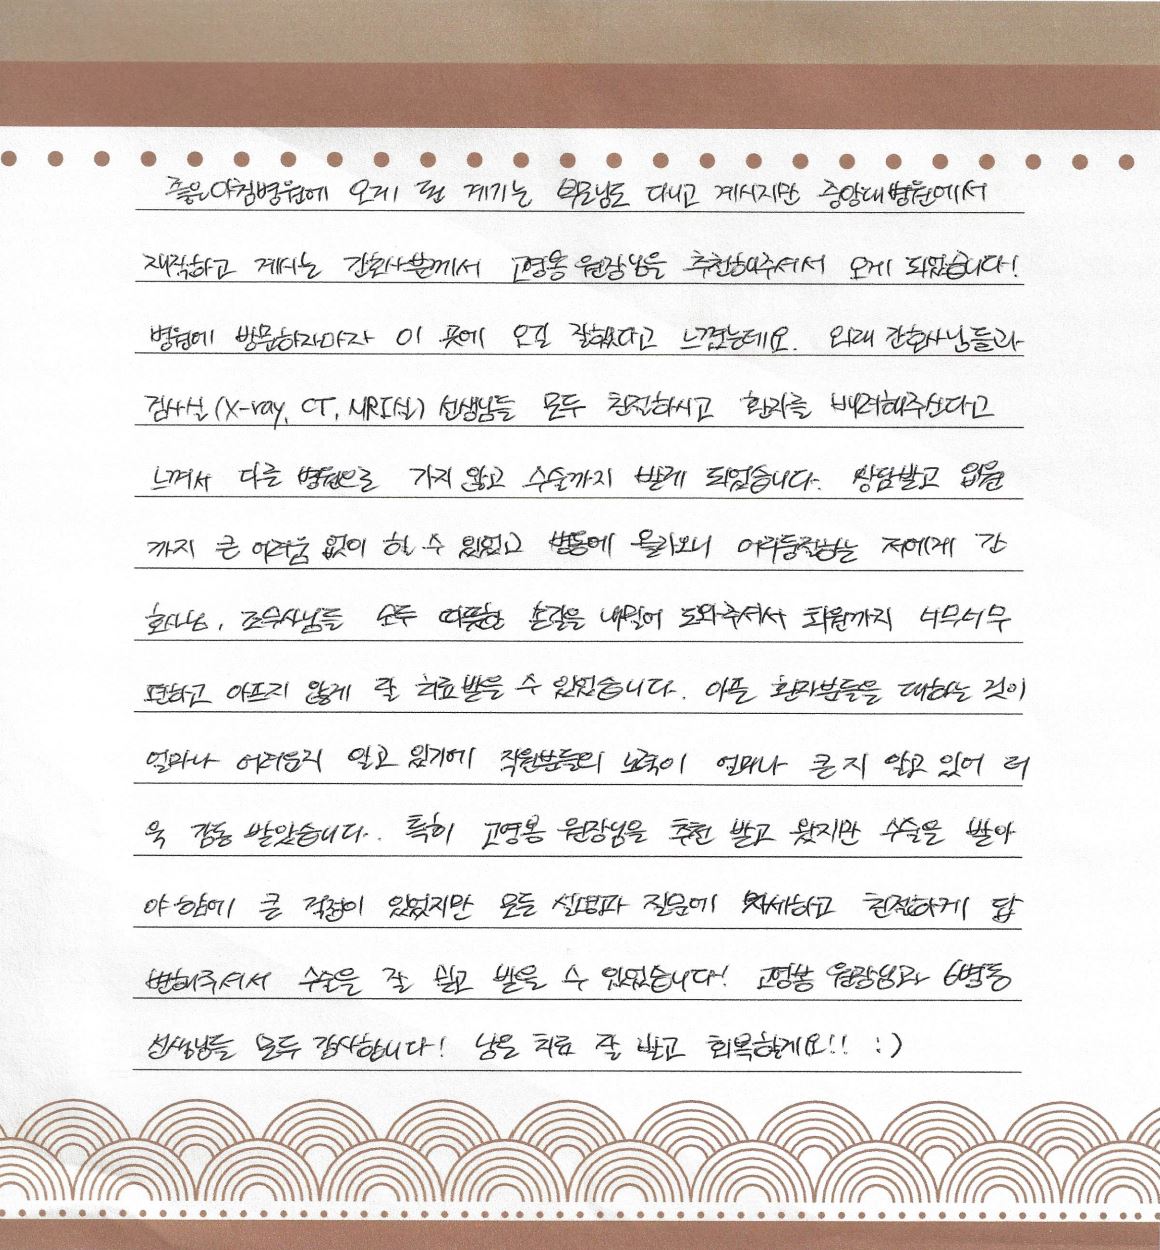 좋은아침병원에 오게 된 계기는 부모님도 다니고 계시지만 중앙대병원에서
재직하고 계시는 간호사분께서 고영봉 원장님을 추천해주셔서 오게 되었습니다!
병원에 방문하자마자 이 곳에 오길 잘했다고 느꼈는데요. 외래 간호사님들과
검사실(X-ray, CT, MRI실) 선생님들 모두 친절하시고 환자를 배려해주신다고
느껴서 다른 병원으로 가지 않고 수술까지 받게 되었습니다. 상담받고 입원
까지 큰 어려움 없이 할 수 있었고 병동에 올라오니 어리둥절하는 저에게 간
호사님, 조무사님들 모두 따뜻한 손길을 내밀어 도와주셔서 퇴원까지 너무너무
편하고 아프지 않게 잘 치료받을 수 있었습니다. 아픈 환자분들을 대하는 것이
얼마나 어려운지 알고 있기에 직원분들의 노력이 얼마나 큰지 알고 있어 더
욱 감동 받았습니다. 특히 고영봉 원장님을 추천 받고 왔지만 수술을 받아
야 함에 큰 걱정이 있었지만 모든 설명과 질문에 자세하고 친절하게 답
변해주셔서 수술을 잘 믿고 받을 수 있었습니다! 고영봉 원장님과 6병동
선생님들 모두 감사합니다! 남은 치료 잘 받고 회복할게요!! :)